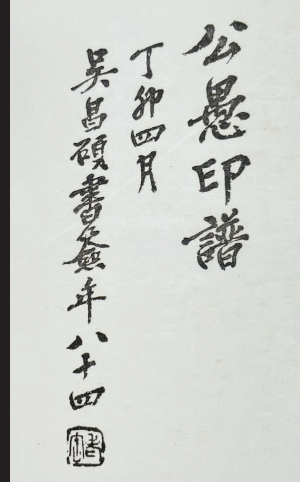 公愚印譜
丁卯四月
吳昌碩書簽年八十四